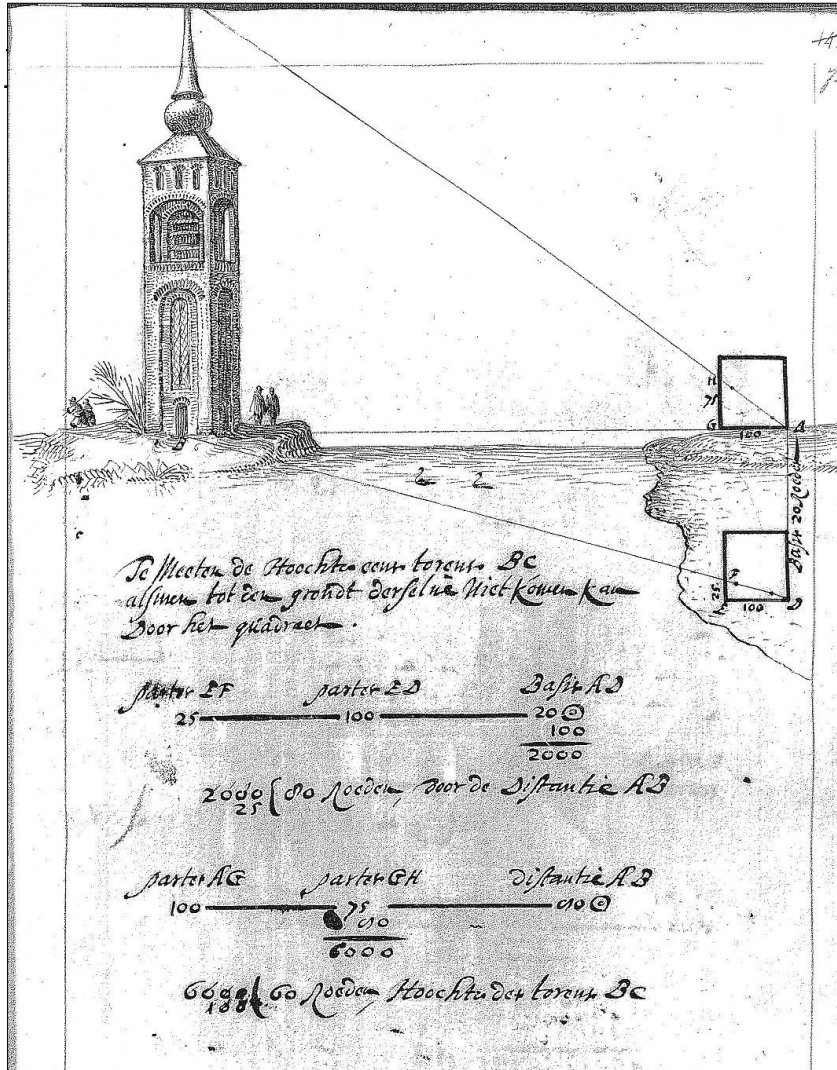 H
75
G
100
A
Basis 20 Roeden
F
25
E
100
D
Te Meeten de Hoochte eens torens BC
alsmen tot den grondt derselve Niet Komen Kan
Door het quadraet.
parten EF parten ED Basis AD
25 100 20
100
2000
2000 80 Roeden, voor de Distantie AB
25
parten AG parten GH distantie AB
100 75 80
80
6000
6000 60 Roeden, Hoochte des torens BC
100